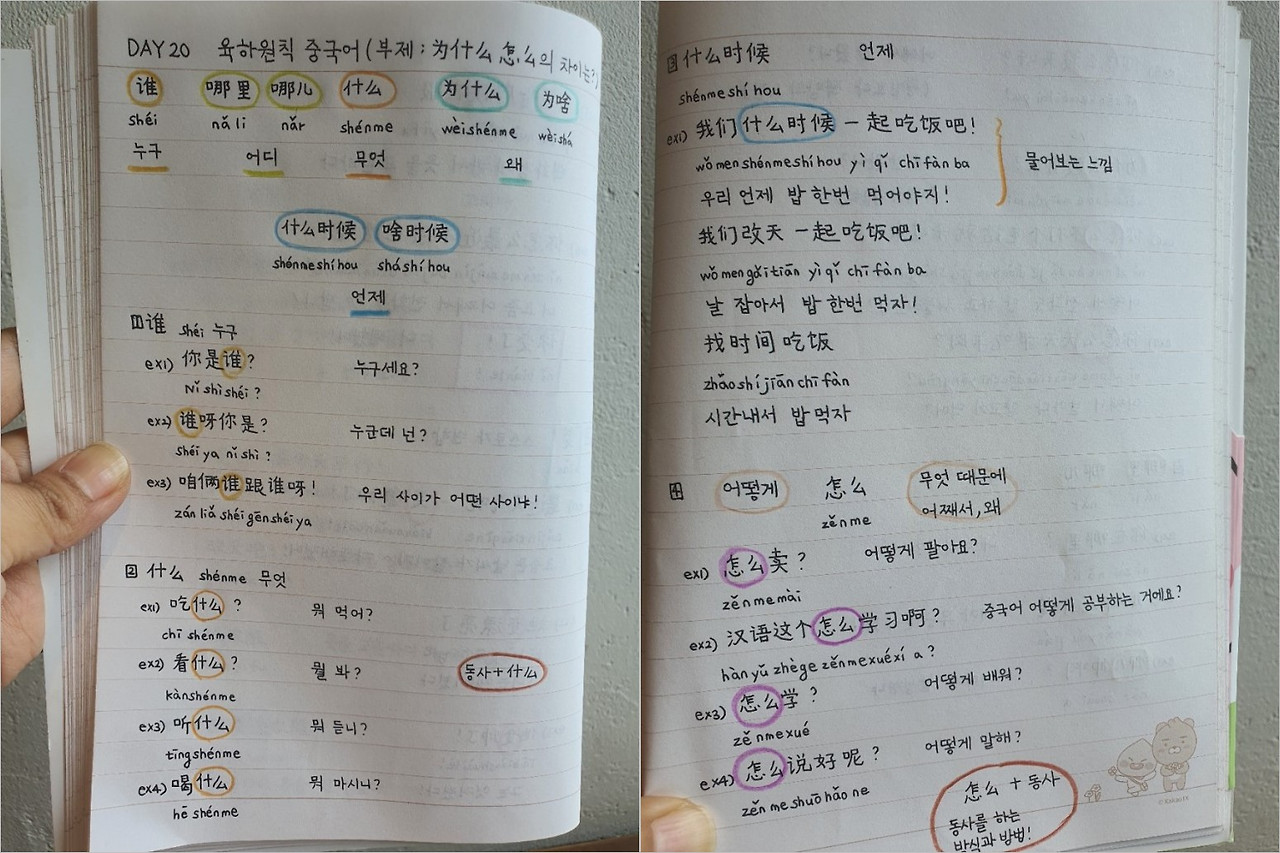 DAY 20 육하원칙 중국어 (부제 : 为什么 怎么의 차이는?)
谁 哪里 哪儿 什么 为什么 为啥
shéi nǎ li nǎr shénme wèishénme wèishá
누구 어디 무엇 왜
什么时候 啥时候
shénmeshíhou sháshíhou
언제
1 谁 shéi 누구
ex1) 你是谁? 누구세요?
Nǐ shì shéi ?
ex2) 谁呀你是? 누군데 넌?
shéi ya nǐ shì ?
ex3) 咱俩谁跟谁呀! 우리 사이가 어떤 사이냐!
zán liǎ shéi gēn shéi ya
2 什么 shénme 무엇
ex1) 吃什么 ? 뭐 먹어?
chī shénme
ex2) 看什么 ? 뭘 봐? 동사+什么
kànshénme
ex3) 听什么 뭐 듣니?
tīngshénme
ex4) 喝什么 뭐 마시니?
hē shénme
3 什么时候 언제
shénme shí hou
ex1) 我们什么时候一起吃饭吧!
wǒ men shénmeshíhou yì qǐ chī fàn ba 물어보는 느낌
우리 언제 밥 한번 먹어야지!
我们改天一起吃饭吧!
wǒ men gǎi tiān yì qǐ chī fàn ba
날 잡아서 밥 한번 먹자!
找时间吃饭
zhǎo shí jiān chī fàn
시간내서 밥 먹자
4 어떻게 怎么 무엇 때문에
zěn me 어째서, 왜
ex1) 怎么卖 ? 어떻게 팔아요?
zěn me mài
ex2) 汉语这个怎么学习啊 ? 중국어 어떻게 공부하는 거에요?
hàn yǔ zhège zěnmexuéxí a ?
ex3) 怎么学 ? 어떻게 배워?
zěnmexué
ex4) 怎么说好呢 ? 어떻게 말해?
zěn me shuō hǎo ne
怎么 + 동사
동사를 하는
방식과 방법!
© Kakao